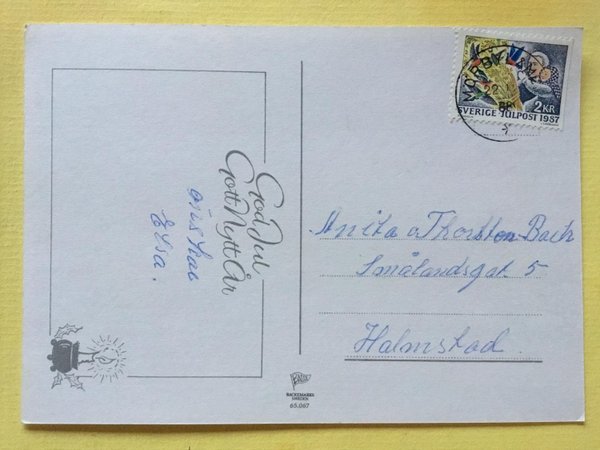 God Jul
Gott Nytt År
önskar
Elsa.
2 KR
SVERIGE JULPOST 1987
Anita o Thorsten Bach
Smålandsgat 5
Halmstad.
BACKEMARKS
SWEDEN
65.067